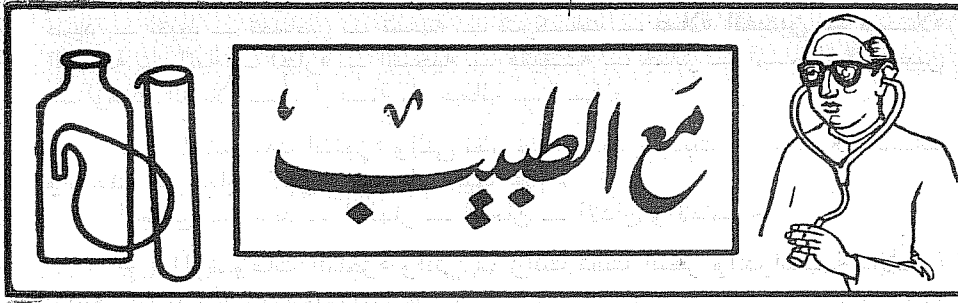 مَع الطبيب